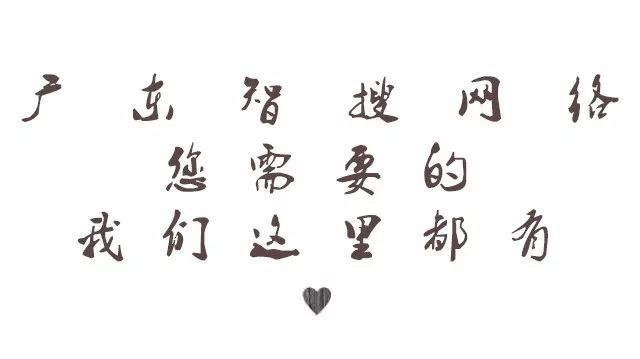 广东智搜网络
您需要的
我们这里都有